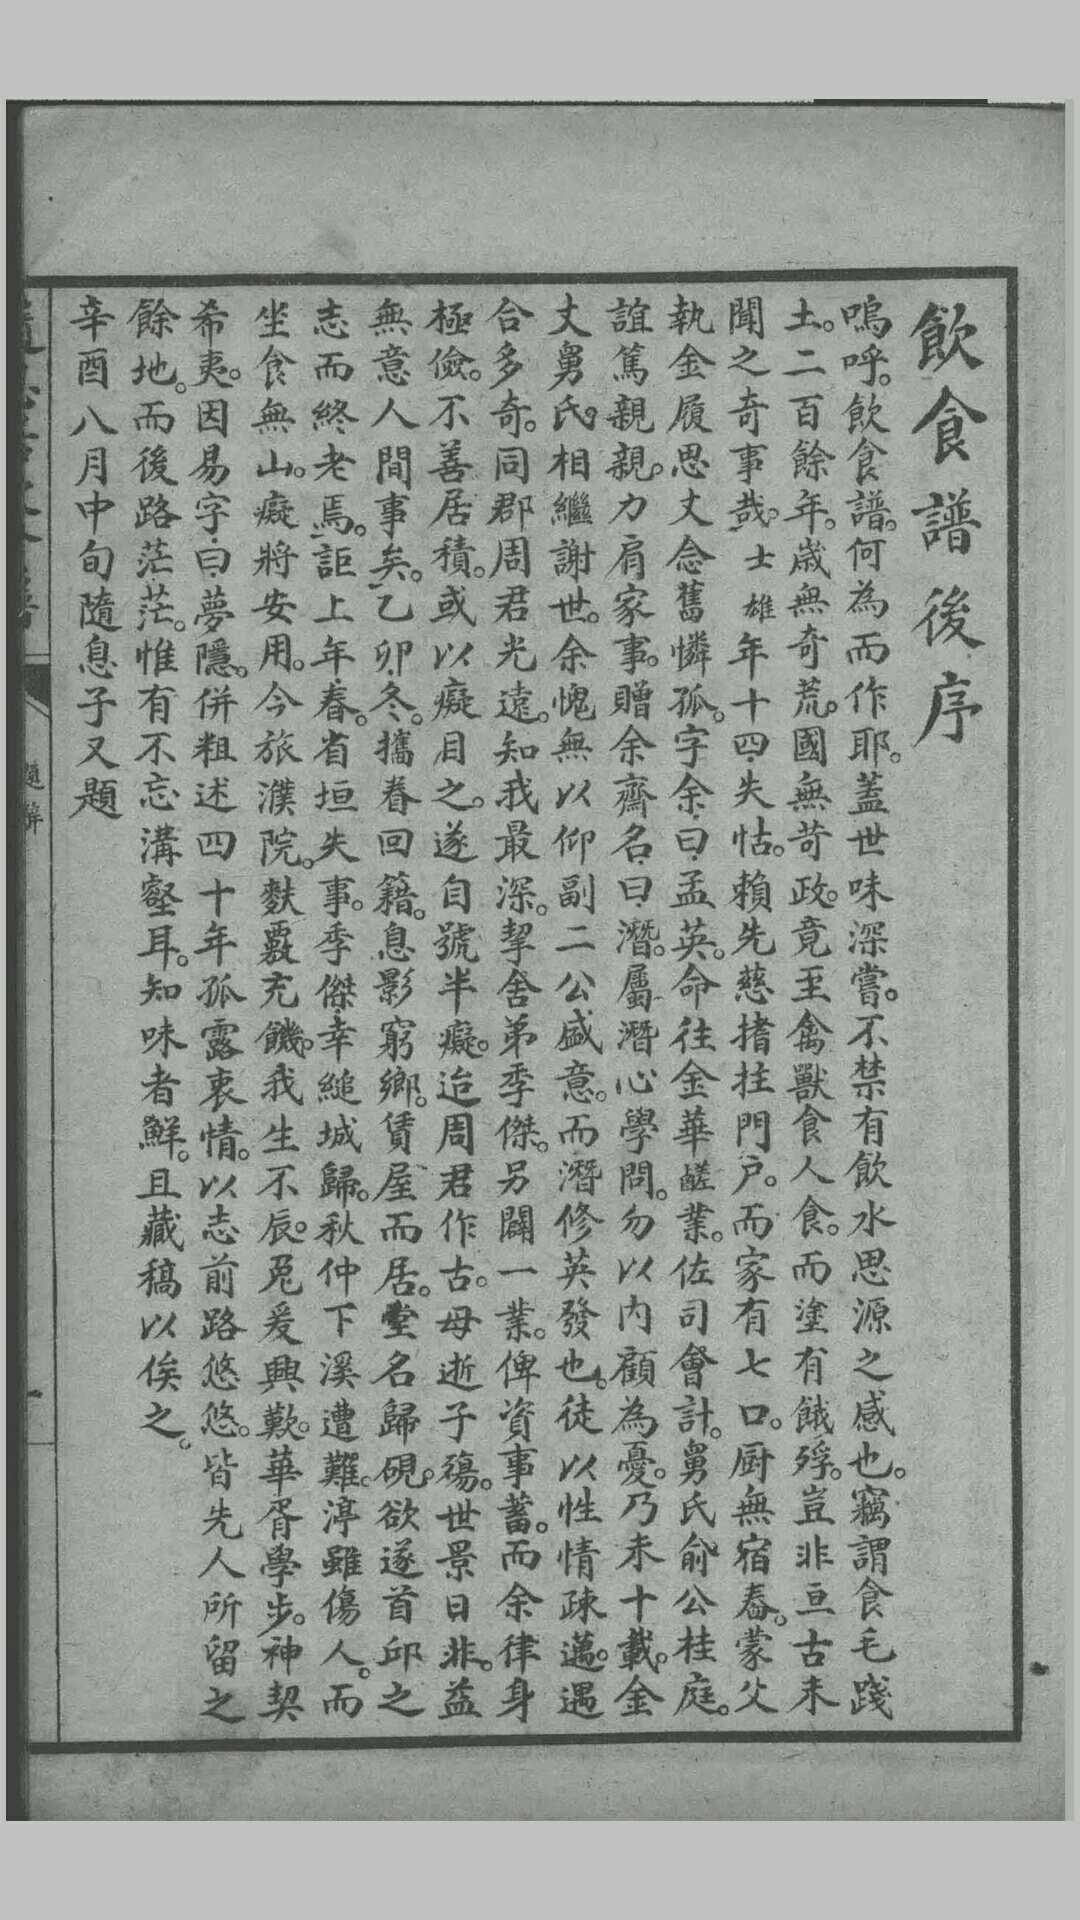 飲食譜後序
嗚呼。飲食譜。何為而作耶。蓋世味深嘗。不禁有飲水思源之感也。竊謂食毛踐
土。二百餘年。歲無奇荒。國無苛政。竟至禽獸食人食。而塗有餓殍。豈非亘古未
聞之奇事哉。士雄年十四。失怙。賴先慈搘拄門戶。而家有七口。厨無宿舂。蒙父
執金履思丈念舊憐孤。字余曰孟英。命往金華鹺業。佐司會計。舅氏俞公桂庭。
誼篤親親。力肩家事。贈余齋名曰潛。屬潛心學問。勿以內顧為憂。乃未十載。金
丈舅氏。相繼謝世。余愧無以仰副二公盛意。而潛修英發也。徒以性情疎邁。遇
合多奇。同郡周君光遠。知我最深。挈舍弟季傑。另闢一業。俾資事蓄。而余律身
極儉。不善居積。或以癡目之。遂自號半癡。迨周君作古。母逝子殤。世景日非。益
無意人間事矣。乙卯冬。攜眷回籍。息影窮鄉。賃屋而居。堂名歸硯。欲遂首邱之
志而終老焉。詎上年春。省垣失事。季傑幸縋城歸。秋仲下溪遭難。渟雖傷人。而
坐食無山。癡將安用。今旅濮院。麩覈充饑。我生不辰。兔爰興歎。華胥學步。神契
希夷。因易字曰夢隱。併粗述四十年孤露衷情。以志前路悠悠。皆先人所留之
餘地。而後路茫茫。惟有不忘溝壑耳。知味者鮮。且藏稿以俟之。
辛酉八月中旬隨息子又題